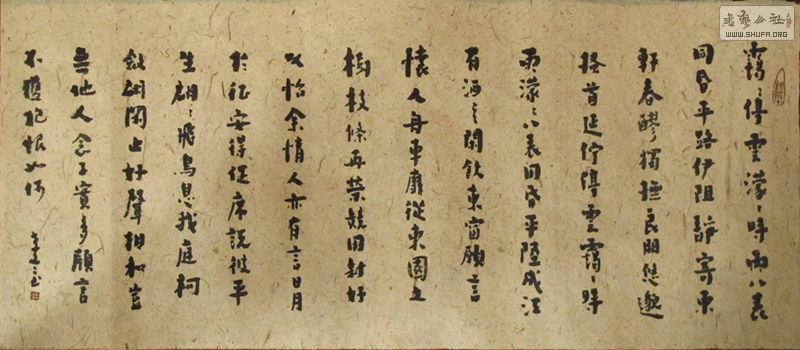 靄〻停雲濛〻時雨八表
同昏平路伊阻靜寄東
軒春醪獨撫良朋悠邈
搔首延佇停雲靄〻時
雨濛〻八表同昏平陸成江
有酒〻閑飲東窗願言
懷人舟車靡從東園之
樹枝條再榮競用新好
以怡余情人亦有言日月
於征安得促席說彼平
生翩〻飛鳥息我庭柯
斂翮閑止好聲相和豈
無他人念子實多願言
不獲抱恨如何
書法公社
WWW.SHUFA.ORG